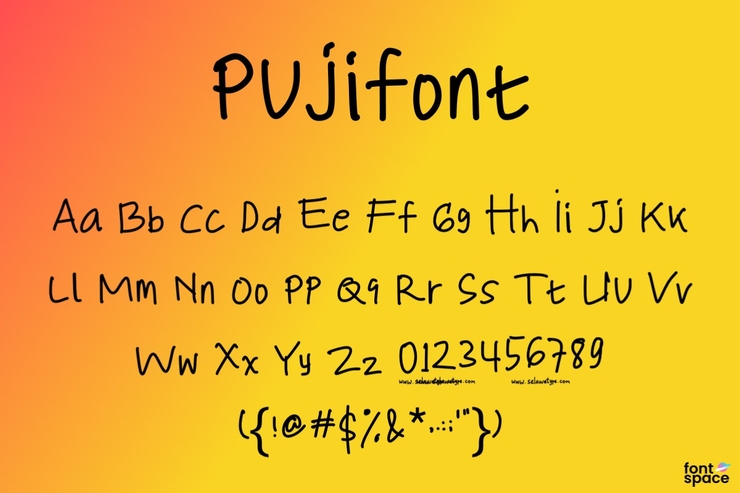 PUJifont
Aa Bb Cc Dd Ee Ff Gg Hh Ii Jj Kk
Ll Mm Nn Oo Pp Qq Rr Ss Tt Uu Vv
Ww Xx Yy Zz 0123456789
www.selawetype.com
({!@#$%&*.,..:;'"})
font
space